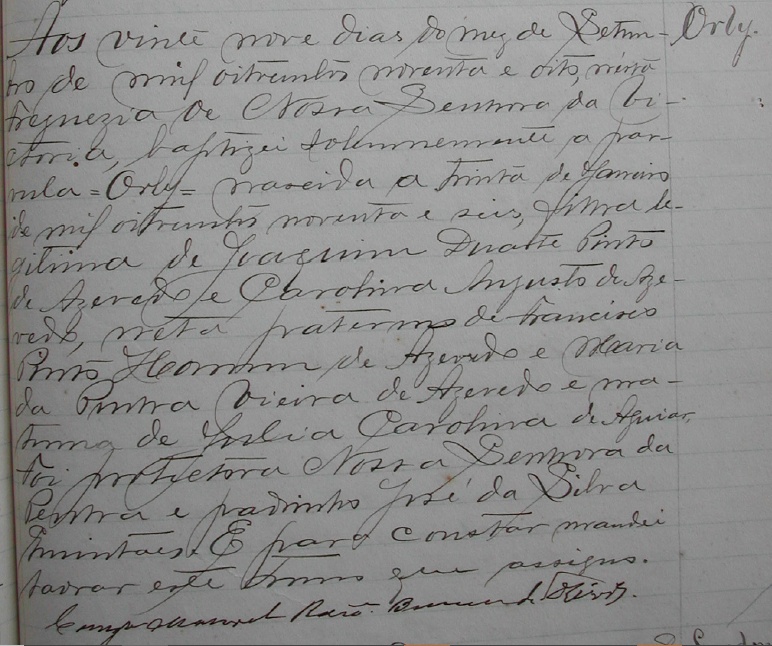 Aos vinte nove dias do mez de Setem- Orly.
bro de mil oitocentos noventa e oito, nésta
freguezia de Nossa Senhora da Vi-
ctoria, baptizei solemnemente a par-
vula = Orly = nascida a trinta de Janeiro
de mil oitocentos noventa e seis, filha le-
gitima de Joaquim Duarte Pinto
de Azevedo e Carolina Augusto de Aze-
vedo, neta paterna de Francisco
Pinto Homem de Azevedo e Maria
da Penha Vieira de Azevedo e ma-
terna de Julia Carolina de Aguiar,
foi protectora Nossa Senhora da
Penha e padrinho José da Silva
Guimarães. E para constar mandei
lavrar este termo que assigno.
Conego Manoel